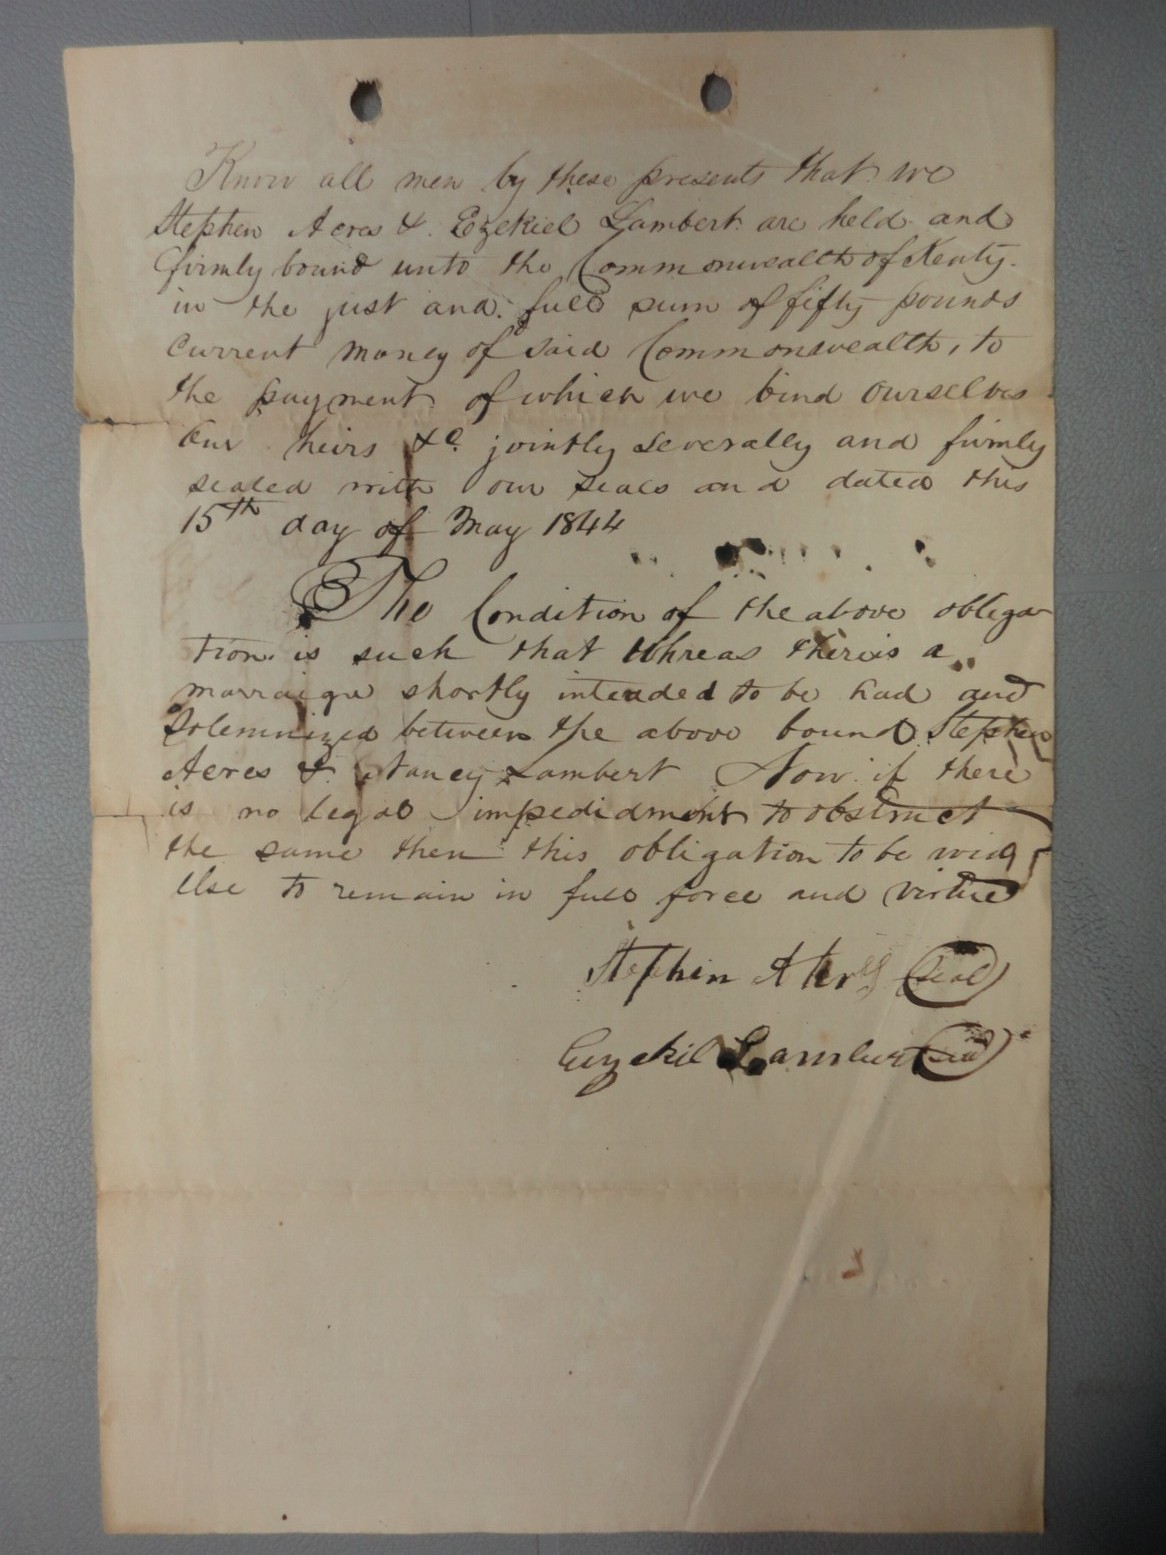 Know all men by these presents that we
Stephen Acres & Ezekiel Lambert are held and
firmly bound unto the Commonwealth of Kenty.
in the just and full sum of fifty pounds
Current money of said Commonwealth, to
the payment of which we bind ourselves
our heirs &c. jointly severally and firmly
sealed with our seals and dated this
15th day of May 1844
The Condition of the above obliga
tion is such that Whreas there is a
marraige shortly intended to be had and
Solemnized between the above bound Stephen
Acres & Nancy Lambert Now if there
is no legal impedidment to obstruct
the same then this obligation to be void
Else to remain in full force and virtue
Stephen (Seal)
Lambert (Seal)